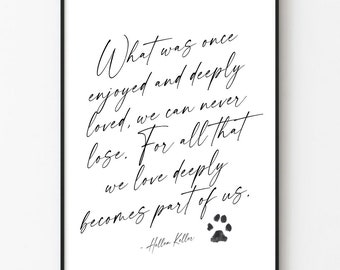 What was once
enjoyed and deeply
loved, we can never
lose. For all that
we love deeply
becomes part of us.
- Hellen Keller